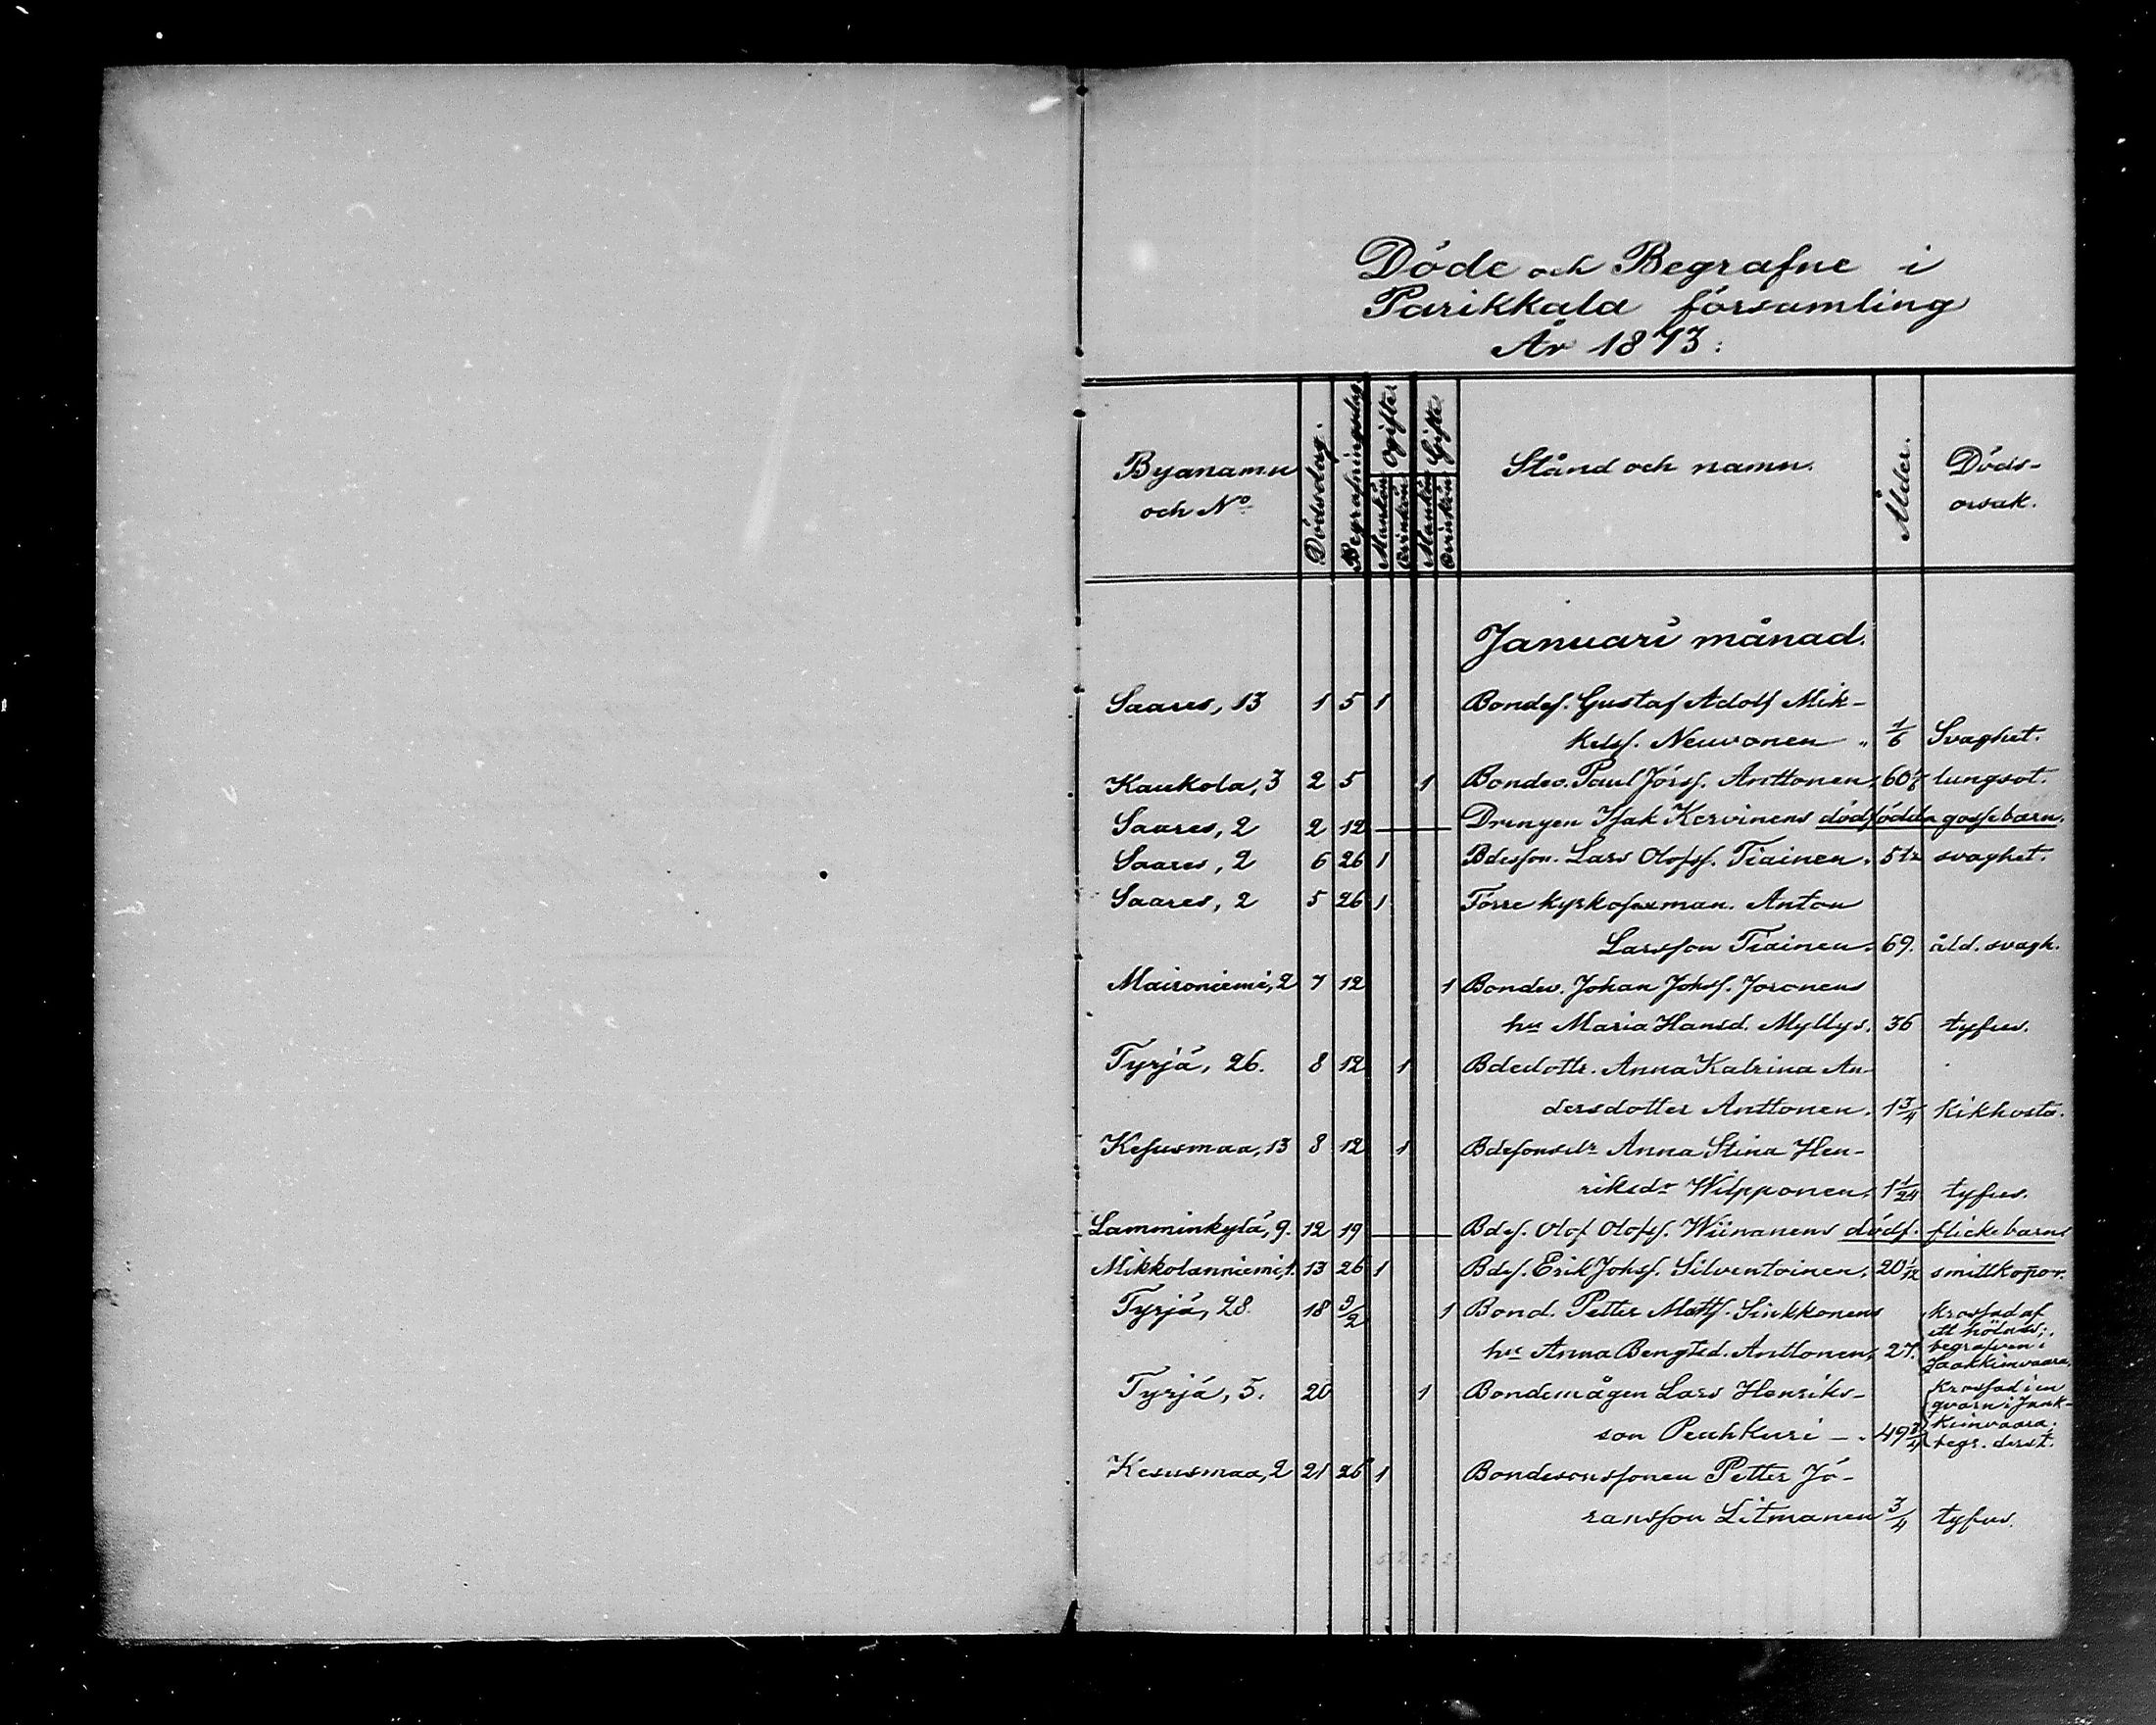 Döde och Begrafne i
Parikkala församling
År 1873.
Byanamn och No Dödsdag. Begrafningsdag Ogifte Mankön Qvinkön Gifte Mankön Qvinkön Stånd och namn. Ålder. Döds-orsak.
Januari månad.
Saares, 13 1 5 1 Bondes. Gustaf Adolf Mik-
kelss. Neuvonen „ 1/6 Svaghet.
Kaukola, 3 2 5 1 Bondev. Paul Jörss. Anttonen, 60 lungsot.
Saares, 2 2 12 Drengen Isak Kervinens dödfödda gossebarn.
Saares, 2 6 26 1 Bdesson. Lars Olofss. Tiainen. svaghet.
Saares, 2 5 26 1 Förre kyrkosexman. Anton
Larsson Tiainen. 69. åld. svagh.
Maironiemi, 2 7 12 1 Bondev. Johan Johss. Joronens
hu Maria Hansd. Myllys. 36 tyfus.
Tyrjä, 26. 8 12 1 Bdedottr. Anna Katrina An-
dersdotter Anttonen. 1 3/4 Kikhosta.
Kesusmaa, 13 8 12 1 Bdesonsdr Anna Stina Hen-
riksdr Wilpponen. 1 1/24 tyfus.
Lamminkylä, 9. 12 19 Bdes. Olof Olofss. Wiinanens dödf. flickebarn.
Mikkolanniemi, 1. 13 26 1 Bdes. Erik Johss. Silventoinen. 20 1/12 smittkopor.
Tyrjä, 28 18 9/2 1 Bond. Petter Matts. Sinkkonens krossad af
ett hölass;
hu Anna Bengtsd. Anttonen, 27. begrafven i
Jaakkimvaara.
Tyrjä, 5. 20 1 Bondemågen Lars Henriks- Krossad i en
qvarn i Jaak-
son Peuhkuri – . 49 3/4 kimvaara;
begr. derst.
Kesusmaa, 2 21 26 1 Bondesonssonen Petter Jö-
ransson Litmanen 3/4 tyfus.